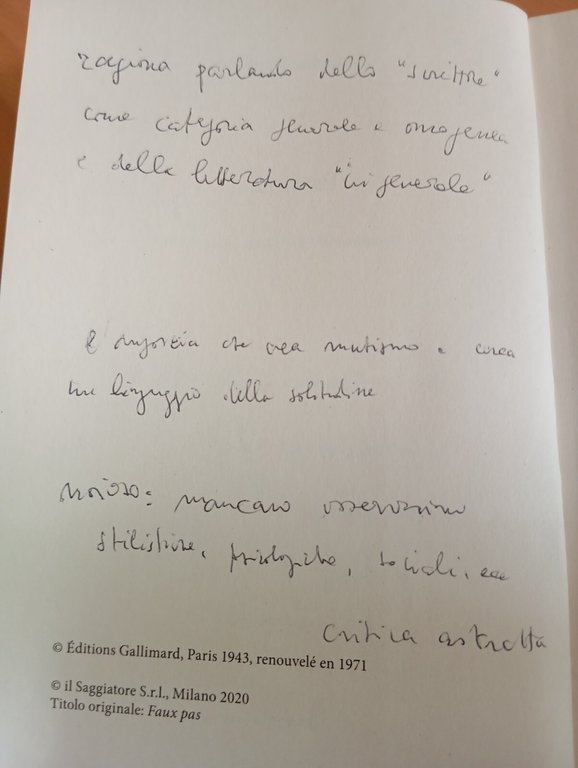 ragiona parlando dello "scrittore"
come categoria generale e omogenea
e della letteratura "in generale"
È angoscia che crea mutismo e cerca
un linguaggio della solitudine
noioso: mancano osservazioni
stilistiche, psicologiche, sociali, ecc
critica astratta
© Éditions Gallimard, Paris 1943, renouvelé en 1971
© il Saggiatore S.r.l., Milano 2020
Titolo originale: Faux pas